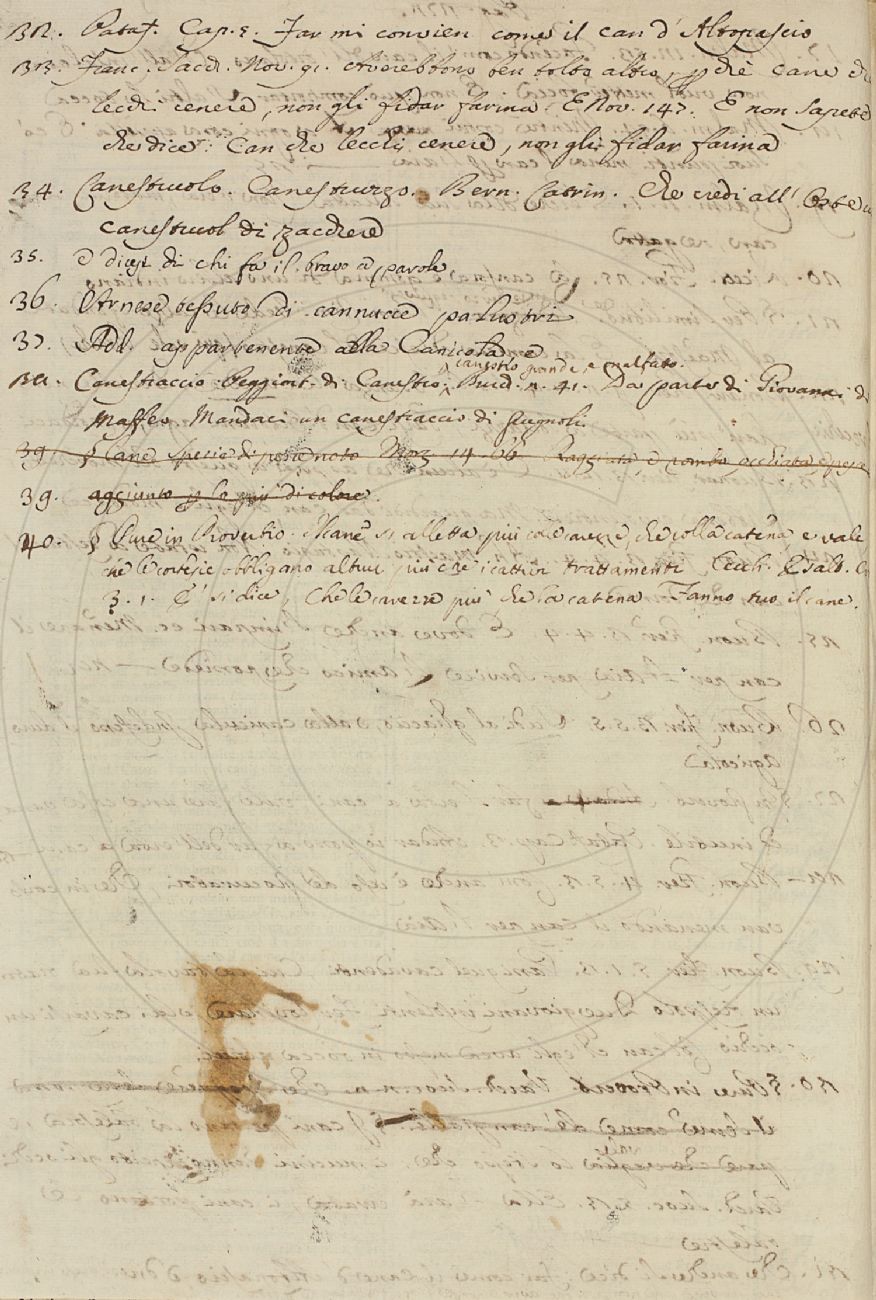 32. Pataf. Cap. 5. Far mi convien come il can d'Altopascio
33. Franc. Sacch. Nov. 91. Averebbono ben tolto altro, pchè cane che
lecchi cenere, non gli fidar farina. E Nov. 147. E non sapete
che dice: Can che lecchi cenere, non gli fidar farina
34. Canestruolo. Canestruzzo. Bern. Catrin. Che credi all' Oste
canestruol di zacchere
35. e dicesi di chi fa il bravo a parole
36. Arnese tessuto di cannucce palustri
37. Add. appartenente alla Canicola e
canestro grande, e malfatto.
38. Canestraccio Peggiorat. di Canestro, Buid. n. 41. Da parte di Giovanni di
Maffeo Mandaci un canestraccio di fugnoli
39. § Cane spezie di pesce noto Morg. 14. 66. Raggiata, e rombo occhiata e pesce
39. aggiunto p lo più di colore.
40. § Pure in Proverbio. Il cane si alletta più colle carezze, che colla catena e vale
che le cortesie obbligano altrui più che i cattivi trattamenti Cecch. Esalt. Cr
3. 1. E' si dice, Che le carezze più che la catena Fanno tuo il cane.